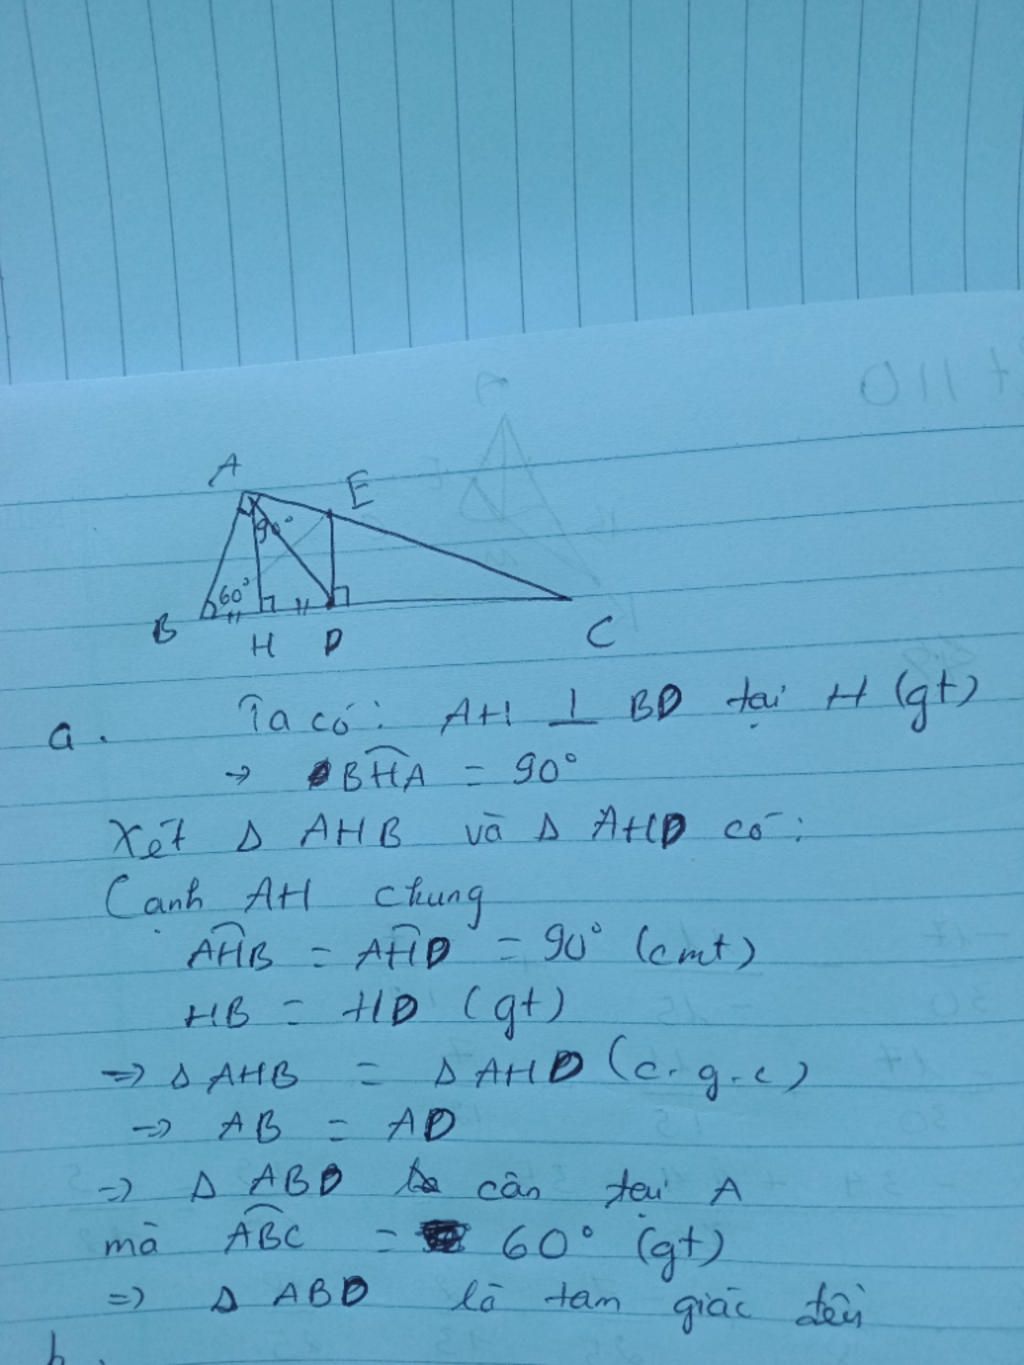 A
E
90°
60°
B
H
D
C
a. Ta có: AH ⊥ BD tại H (gt)
→ BHA = 90°
Xét Δ AHB và Δ AHD có:
Cạnh AH chung
AHB = AHD = 90° (cmt)
HB = HD (gt)
=> Δ AHB = Δ AHD (c.g.c)
=> AB = AD
=> Δ ABD cân tại A
mà ABC = 60° (gt)
=> Δ ABD là tam giác đều
b.